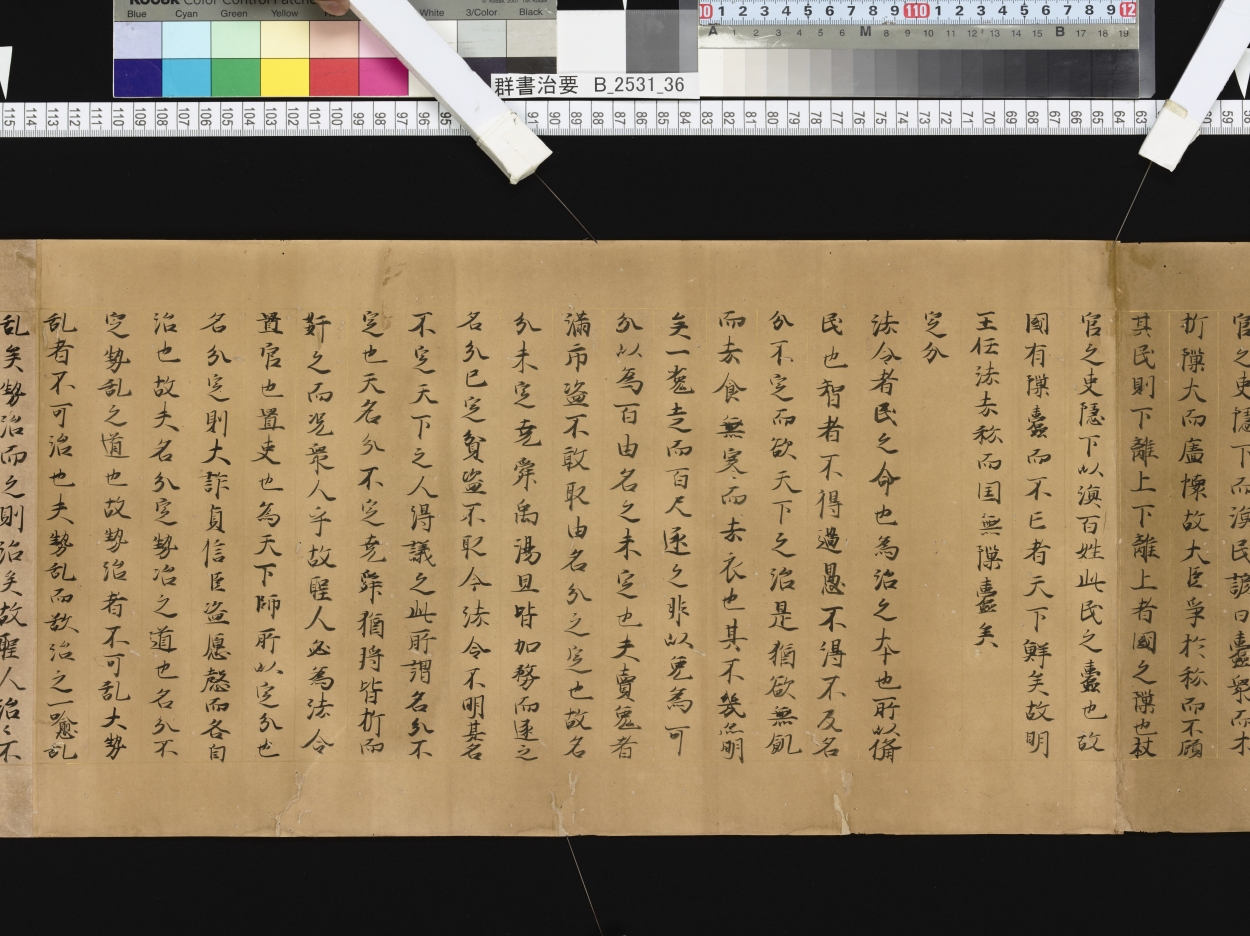 KODAK Color Control Patches
Blue Cyan Green Yellow White 3/Color Black
群書治要 B_2531_36
官之吏隠下而漁民諺曰蠹衆而木
折隟大而廧壊故大臣爭於私而不顧
其民則下離上下離上者國之隟也杖
官之吏隠下以漁百姓此民之蠹也故
國有隟蠹而不亡者天下鮮矣故明
王任法去私而国無隟蠹矣
定分
法令者民之命也為治之本也所以備
民也智者不得過愚不得不及名
分不定而欲天下之治是猶欲無飢
而去食無寒而去衣也其不幾亦明
矣一菟走而百尺逐之非以菟為可
分以為百由名之未定也夫賣菟者
滿市盗不敢取由名分之定也故名
分未定尭舜禹湯且皆加務而逐之
名分已定貧盗不取今法令不明其名
不定天下之人得議之此所謂名分不
定也夫名分不定尭舜猶将皆折而
姧之而况衆人乎故聖人必為法令
置官也置吏也為天下師所以定分也
名分定則大詐貞信臣盗愿愨而各自
治也故夫名分定勢治之道也名分不
定勢乱之道也故勢治者不可乱大勢
乱者不可治也夫勢乱而欲治之一愈乱
乱矣勢治而之則治矣故聖人治々不